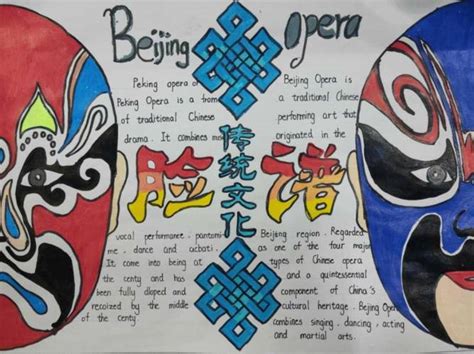 Beijing opera
Peking opera or
Peking Opera is a from
of traditional Chinese
drama. It combines mus
脸
vocal performance. pantomi
me. dance and acbati.
It come into being at
the centy and has
been fully dloped and
recoized by the middle
of the centy.
传统文化
Beijing Opera is
a traditional Chinese
performing art that
originated in the
谱
Beijing region. Regarded
as one of the four major
types of Chinese opera
and a quintessential
component of China's
cultural heritage. Beijing Opera
combines singing, dancing, acting
and martial arts.